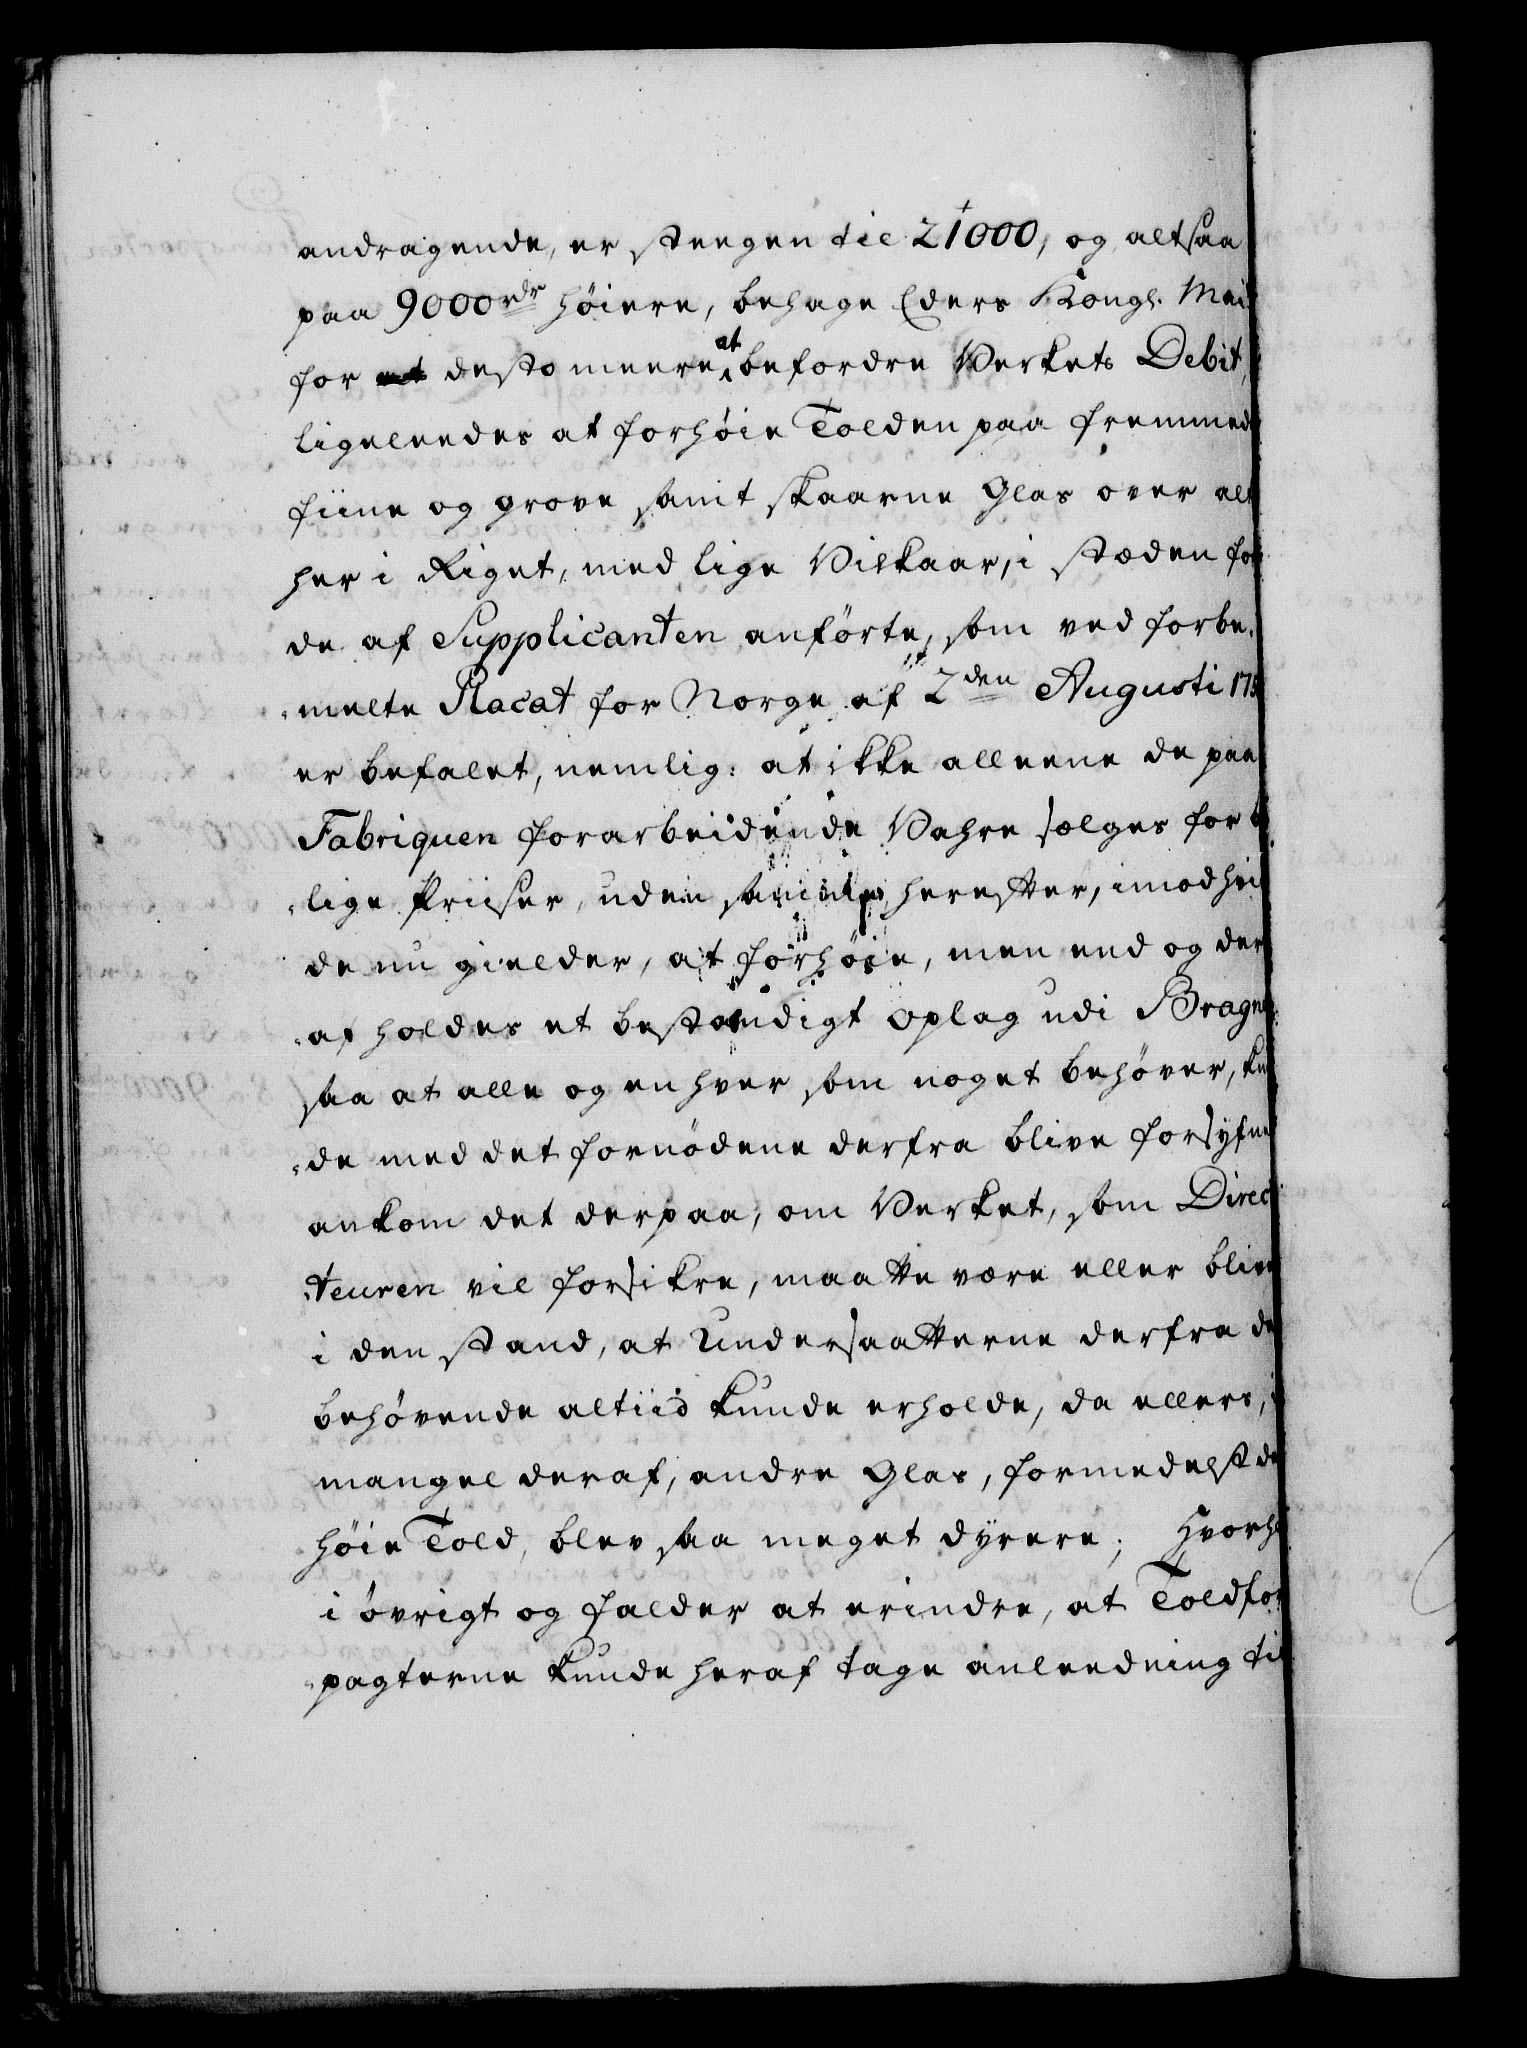 andragende, er steegen til 21000, og altsaa
paa 9000 rdr høiere, behage Eders Kongl. Mai
for at desto meere at befordre Verkets Debit,
ligeleedes at forhøie Tolden paa fremmed
fiine og grove samt skaarne Glas over alt
her i Riget, med lige Vilkaar, i stæden for
de af Supplicanten anførte, som ved forbe-
-melte Placat for Norge af 2den Augusti 175
er befalet, nemlig: at ikke alleene de paa
Fabriquen forarbeidende Vahre sælges for b
-lige Priiser, uden samme herefter, imod hvis
de nu gielder, at forhøie, men end og der
-af holdes et bestandigt Oplag udi Bragn
saa at alle og enhver som noget behøver, kun
-de med det fornødene derfra blive forsynet
ankom det derpaa, om Verket, som Direc
-teuren vil forsikre, maatte være eller blive
i den stand, at Undersaatterne derfra de
behøvende altiid kunde erholde, da ellers, i
mangel deraf, andre Glas, formedelst de
høie Told, blev saa meget dyrere; hvorh
i øvrigt og falder at erindre, at Toldfor
-pagterne kunde heraf tage anleedning til